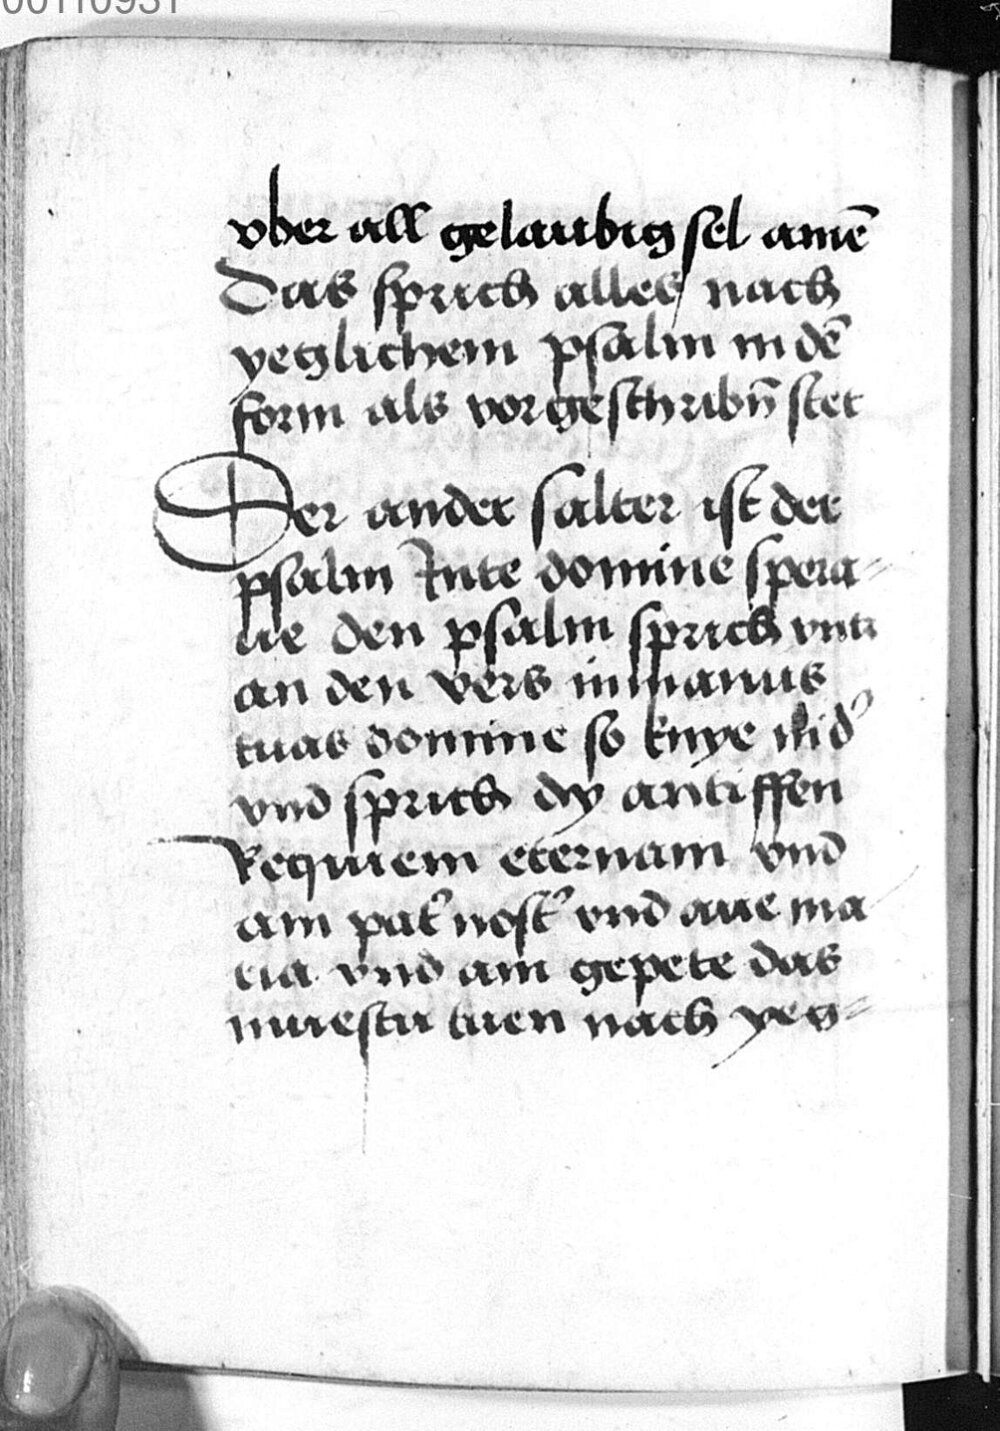 00110931
vber all gelaubig sel amē
Das sprich alles nach
yeglichem psalm in dē
form als vor geschribn̄ stet
Der ander salter ist der
psalm Inte domine spera-
ue den psalm sprich vntz
an den vers in manus
tuas domine so knye nid'
vnd sprich dy antiffen
Requiem eternam vnd
ain pat' nost' vnd aue ma
ria vnd ain gepete das
muestu tuen nach yeg-